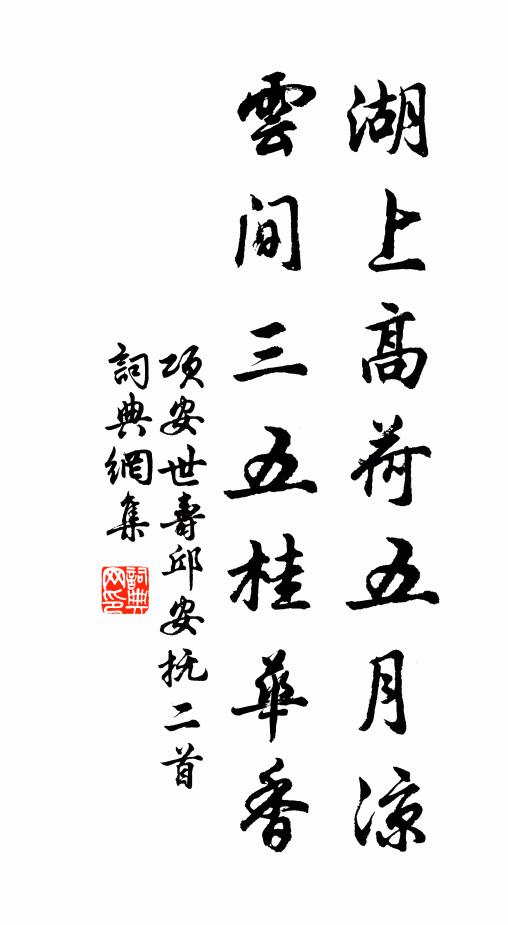 湖上高荷五月凉
雲间三五桂華香
项安世壽邱安抚二首
詞典網集
詞典網印